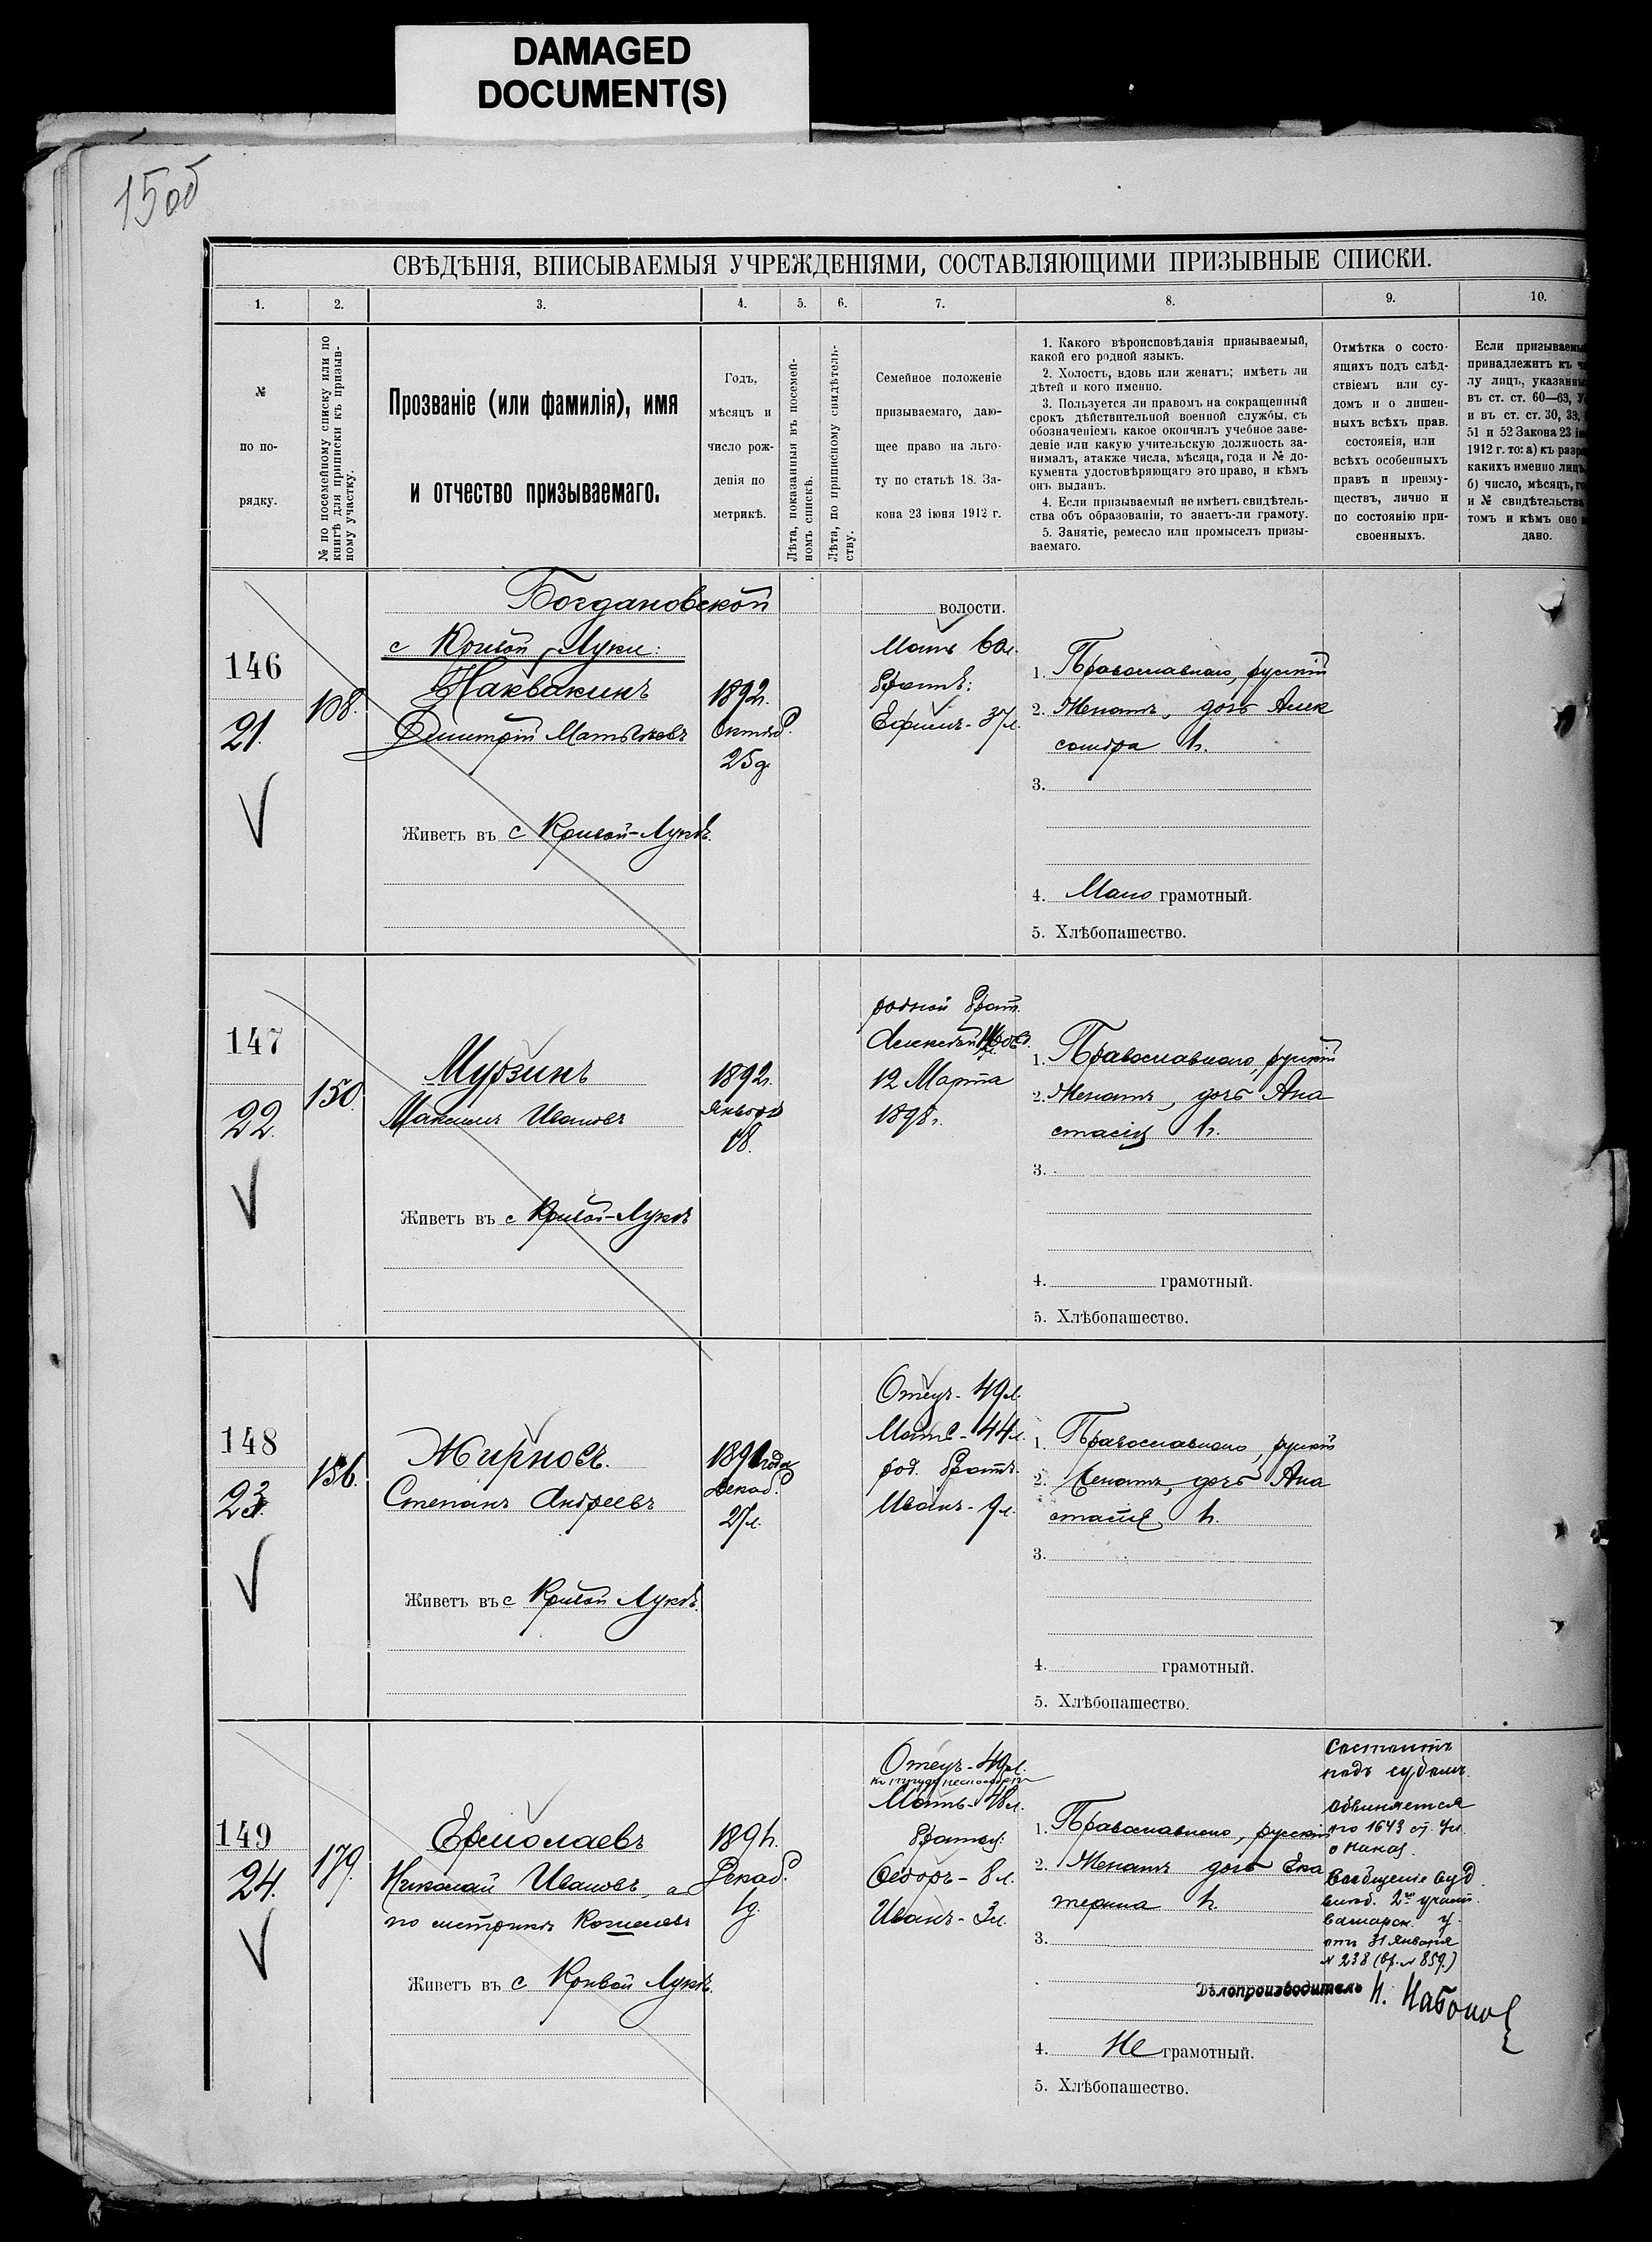 DAMAGED
DOCUMENT(S)
15об
СВѢДѢНІЯ, ВПИСЫВАЕМЫЯ УЧРЕЖДЕНІЯМИ, СОСТАВЛЯЮЩИМИ ПРИЗЫВНЫЕ СПИСКИ.
1. 2. 3. 4. 5. 6. 7. 8. 9. 10.
№
по по-
рядку.
№ по посемейному списку или по
книгѣ для приписки къ призыв-
ному участку.
Прозваніе (или фамилія), имя
и отчество призываемаго.
Годъ,
мѣсяцъ и
число рож-
денія по
метрикѣ.
Лѣта, показанныя въ посемей-
номъ спискѣ.
Лѣта, по приписному свидѣтель-
ству.
Семейное положеніе
призываемаго, даю-
щее право на льго-
ту по статьѣ 18. За-
кона 23 іюня 1912 г.
1. Какого вѣроисповѣданія призываемый,
какой его родной языкъ.
2. Холостъ, вдовъ или женатъ; имѣетъ ли
дѣтей и кого именно.
3. Пользуется ли правомъ на сокращенный
срокъ дѣйствительной военной службы, съ
обозначеніемъ какое окончилъ учебное заве-
деніе или какую учительскую должность за-
нималъ, атакже числа, мѣсяца, года и № до-
кумента удостовѣряющаго это право, и кѣмъ
онъ выданъ.
4. Если призываемый не имѣетъ свидѣтель-
ства объ образованіи, то знаетъ-ли грамоту.
5. Занятіе, ремесло или промыселъ призы-
ваемаго.
Отмѣтка о состо-
ящихъ подъ слѣд-
ствіемъ или су-
домъ и о лишен-
ныхъ всѣхъ прав.
состоянія, или
всѣхъ особенныхъ
правъ и преиму-
ществъ, лично и
по состоянію при-
своенныхъ.
Если призываемы
принадлежитъ къ
лу лицъ, указанны
въ ст. ст. 60—63,
и въ ст. ст. 30, 33,
51 и 52 Закона 23
1912 г. то: а) къ
какихъ именно лицъ
б) число, мѣсяцъ,
и № свидѣтельства
томъ и кѣмъ оно
дано.
Богдановской волости.
с Кривой Луки:
146
21.
108.
Наквакинъ
Димитрій Матвѣевъ
Живетъ въ с Кривой-Лукѣ.
1892г.
Октяб.
25д.
Мать 60л.
братъ:
Ефимъ - 37л.
1. Православнаго, русскій
2. Женатъ, дочь Алек
сандра 1г.
3.
4. Мало грамотный.
5. Хлѣбопашество.
147
22.
150.
Мурзинъ
Максимъ Ивановъ
Живетъ въ с Кривой-Лукѣ
1892г.
Января
18.
родной брат.
Алексѣй
12 Марта
1898г.
1. Православнаго, русскій
2. Женатъ, дочь Ана
стасія 1г.
3.
4. грамотный.
5. Хлѣбопашество.
148
23.
156.
Жирновъ.
Степанъ Андреевъ
Живетъ въ с Кривой Лукѣ.
1891 года
Декаб.
Отецъ - 49л.
Мать - 44л.
род. братъ.
Иванъ - 9л.
1. Православнаго, русскій
2. Женатъ, дочь Ана
стасія 1г.
3.
4. грамотный.
5. Хлѣбопашество.
149
24.
179.
Ермолаевъ
Николай Ивановъ, а
по метрикѣ
Живетъ въ с Кривой Лукѣ.
1891г.
Декаб.
1д.
Отецъ - 49л.
къ труду неспособенъ
Мать - 48л.
братья:
Ѳедоръ - 8л.
Иванъ - 3л.
1. Православнаго, русскій
2. Женатъ дочь Ека
терина 1г.
3.
4. Не грамотный.
5. Хлѣбопашество.
Состоитъ
подъ судомъ.
Обвиняется
по 1643 ст Ул.
о Наказ.
Сообщеніе Суд
слѣд. 2го участ.
Самарск. у.
отъ 31 Января
№ 238 (вх. № 859.)
Дѣлопроизводитель